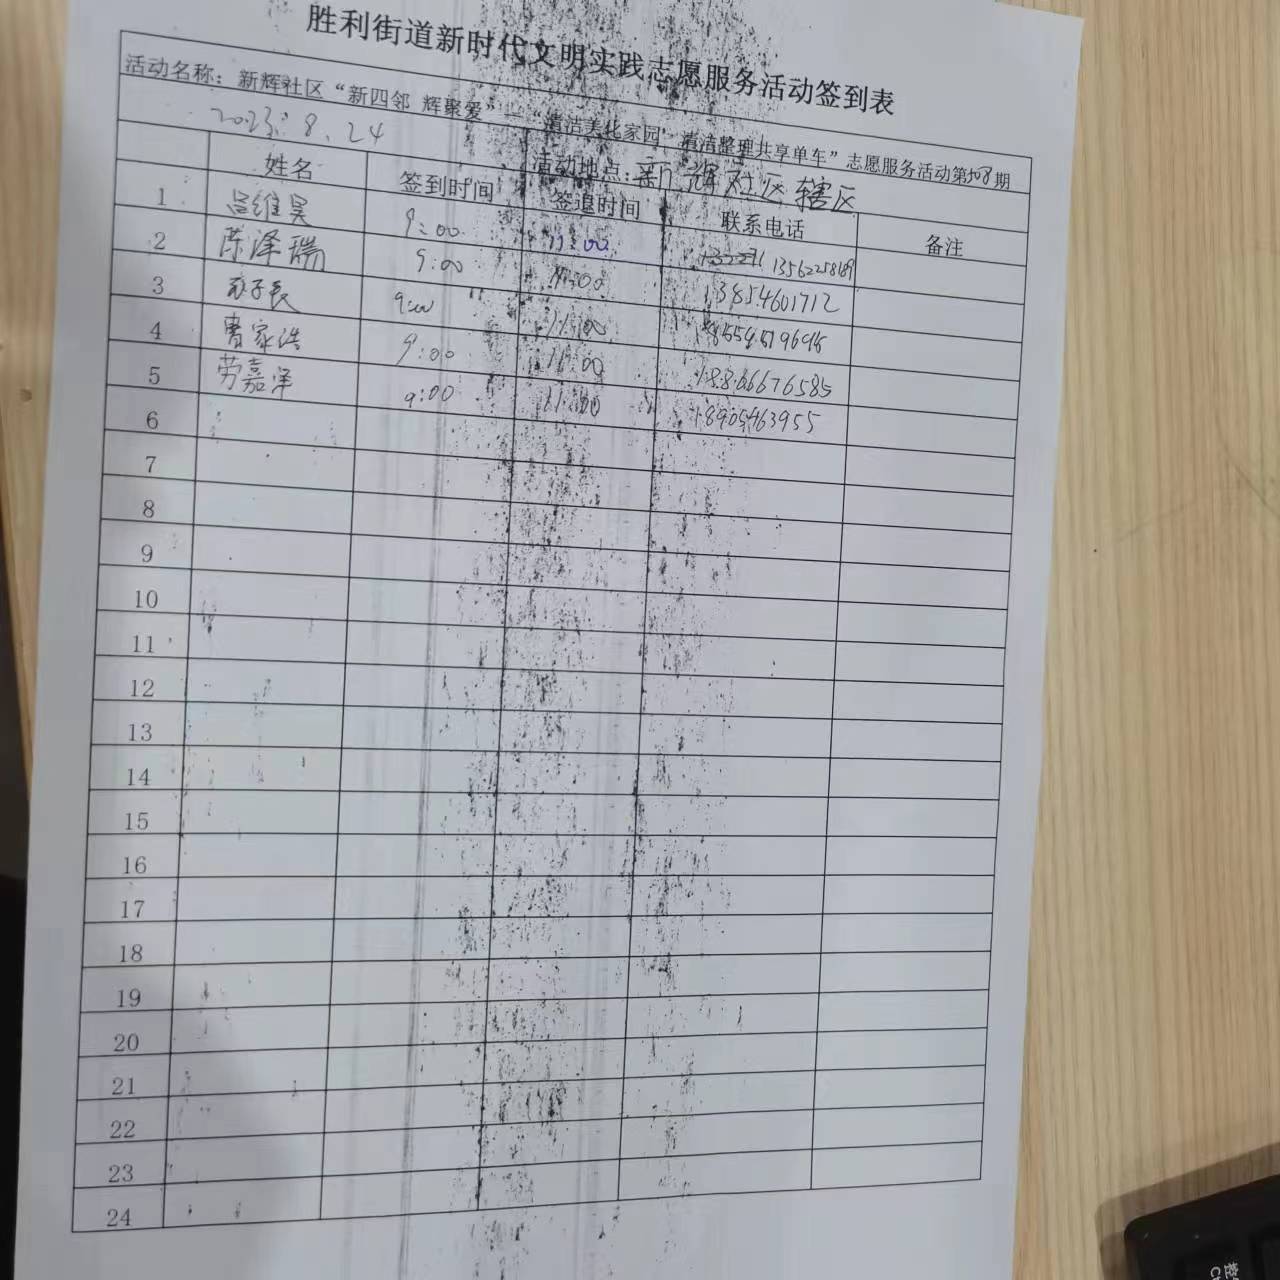 胜利街道新时代文明实践志愿服务活动签到表
活动名称：新辉社区“新四邻 辉聚爱”—“清洁美化家园，清洁整理共享单车”志愿服务活动第108期
2023.8.24 活动地点：新辉社区辖区
姓名 签到时间 签退时间 联系电话 备注
1 吕维昊 9:00 11:00
2 陈泽瑞 9:00 11:00 13854601712
3 9:00 11:00
4 曹家浩 9:00 11:00 18866676585
5 劳嘉泽 9:00 11:00 18905463955
6
7
8
9
10
11
12
13
14
15
16
17
18
19
20
21
22
23
24